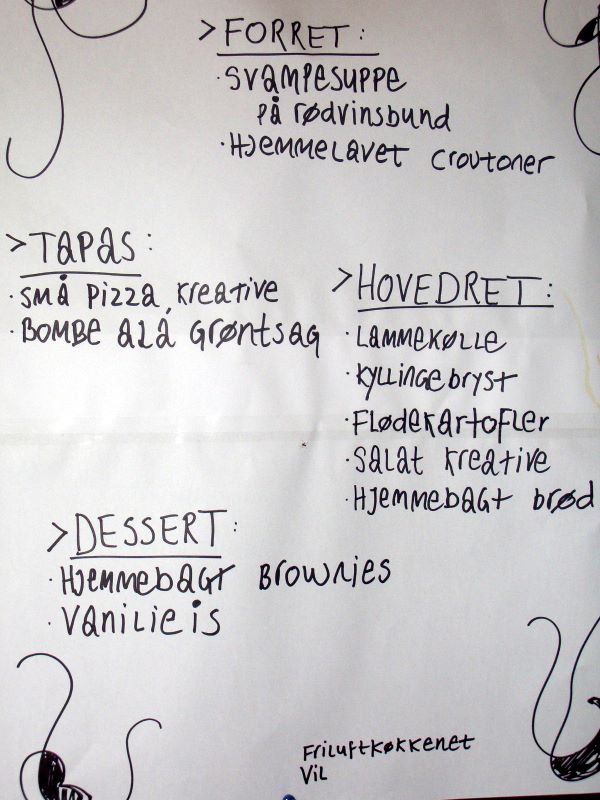 > FORRET:
· Svampesuppe
på rødvinsbund
· Hjemmelavet croutoner
> Tapas:
· små pizza kreative
· Bombe ala grøntsag
> HOVEDRET:
· Lammekølle
· kyllingebryst
· Flødekartofler
· salat kreative
· Hjemmebagt brød
> DESSERT:
· Hjemmebagt Brownies
· Vanilieis
Friluftkøkkenet
ViL